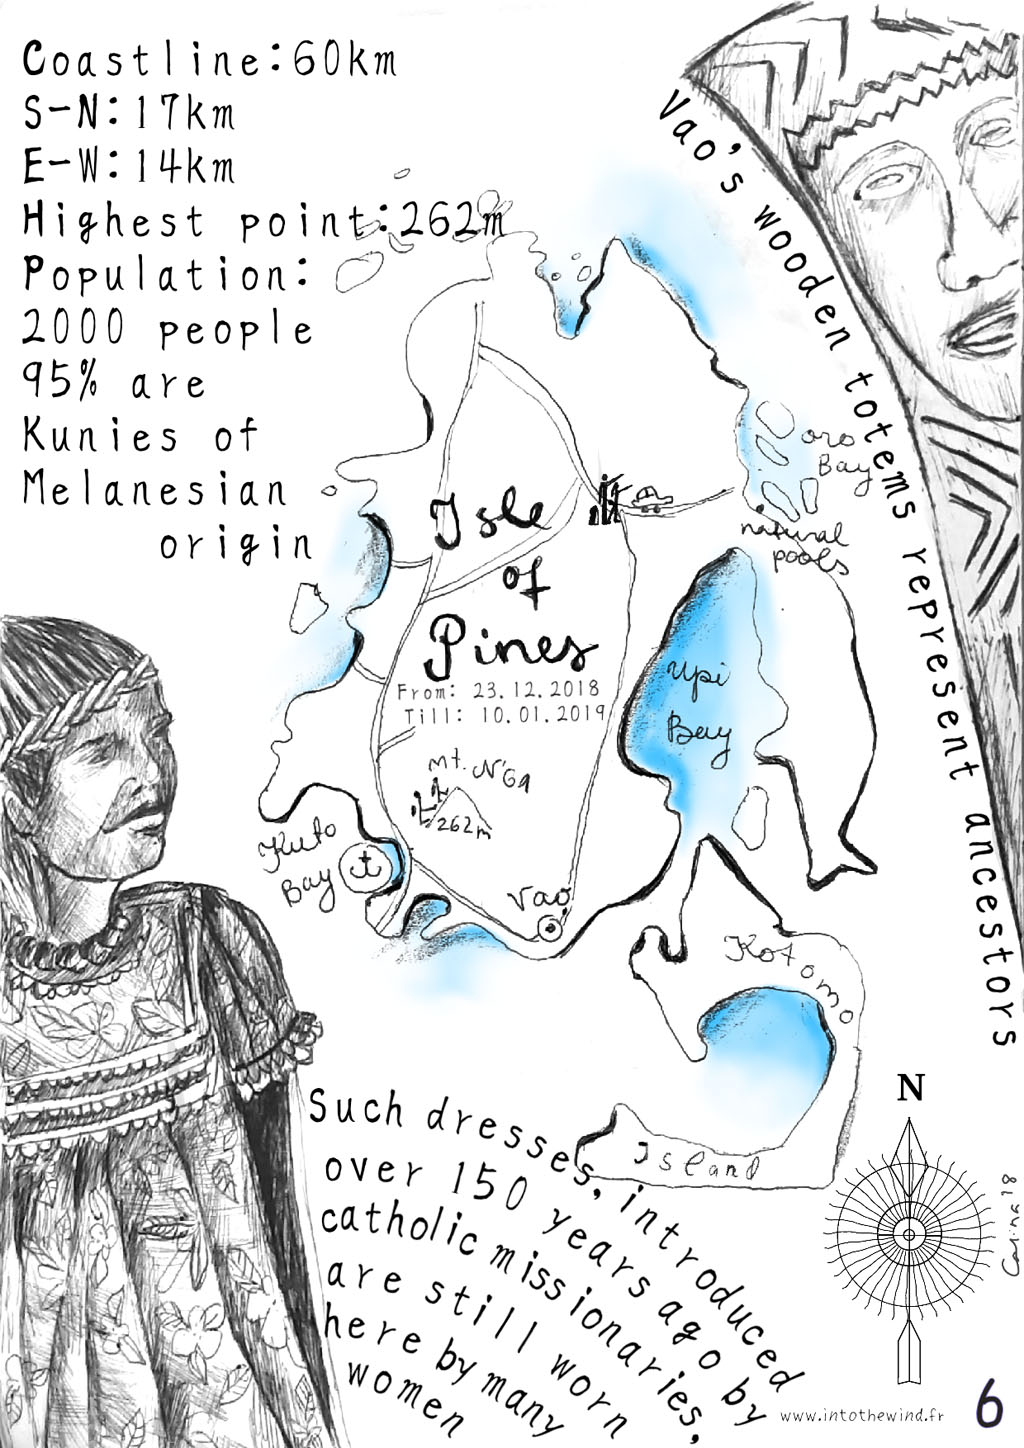 Coastline:60km
S-N:17km
E-W:14km
Highest point:262m
Population:
2000 people
95% are
Kunies of
Melanesian
origin
Vao's wooden totems represent ancestors
oro
Bay
natural
pools
Isle
of
Pines
From: 23.12.2018
Till: 10.01.2019
Upi
Bay
Mt. N'Ga
262m
Kuto
Bay
Vao
Kotomo
Island
Such dresses, introduced
over 150 years ago by
catholic missionaries,
are still worn
here by many
women
N
Carina 18
www.intothewind.fr
6